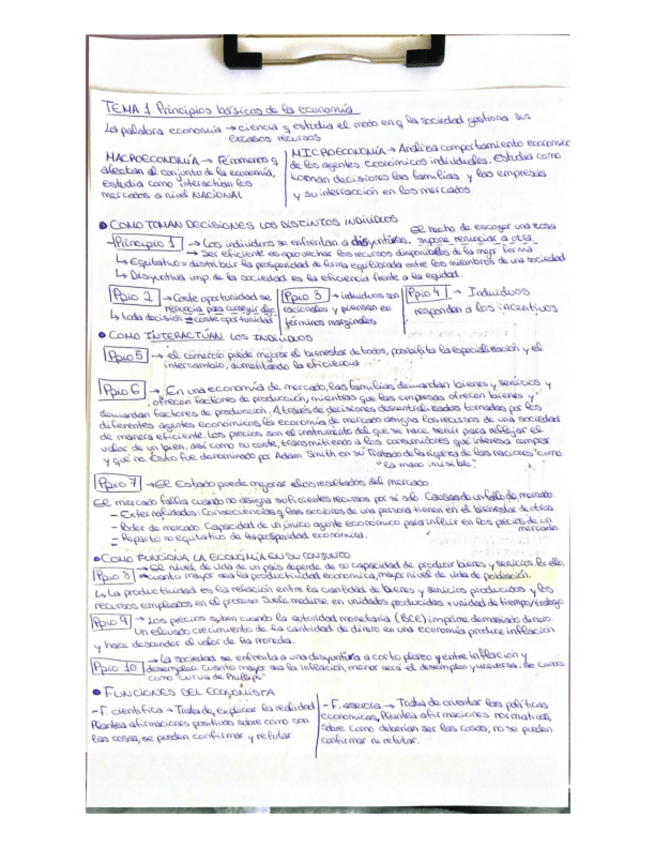 TEMA 1. Principios básicos de la economía
La palabra economía → ciencia q estudia el modo en q la sociedad gestiona sus
escasos recursos
MACROECONOMÍA → Fenómenos q
afectan al conjunto de la economía,
estudia como interactúan los
mercados a nivel NACIONAL
MICROECONOMÍA → Analiza comportamiento económico
de los agentes económicos individuales. Estudia como
toman decisiones las familias y las empresas
y su interacción en los mercados
• COMO TOMAN DECISIONES LOS DISTINTOS INDIVIDUOS
El hecho de escoger una cosa
- Principio 1 → Los individuos se enfrentan a disyuntivas. supone renunciar a otra
→ Ser eficiente es aprovechar los recursos disponibles de la mejor forma
↳ Equitativo = distribuir la prosperidad de forma equilibrada entre los miembros de una sociedad
↳ Disyuntiva imp. de la sociedad es la eficiencia frente a la equidad.
Ppio 2 → Coste oportunidad es
renuncia para conseguir algo
↳ toda decisión = coste oportunidad
Ppio 3 → individuos son
racionales y piensan en
términos marginales
Ppio 4 → Individuos
responden a los incentivos
• COMO INTERACTÚAN LOS INDIVIDUOS
Ppio 5 → el comercio puede mejorar el bienestar de todos, posibilita la especialización y el
intercambio, aumentando la eficiencia
Ppio 6 → En una economía de mercado, las familias demandan bienes y servicios y
ofrecen factores de producción, mientras que las empresas ofrecen bienes y
demandan factores de producción. A través de decisiones descentralizadas tomadas por los
diferentes agentes económicos, la economía de mercado asigna los recursos de una sociedad
de manera eficiente. Los precios son el instrumento del que se hace servir para reflejar el
valor de un bien, así como su coste, transmitiendo a los consumidores qué interesa comprar
y qué no. Esto fue denominado por Adam Smith en su Tratado de la riqueza de las naciones "como
"la mano invisible"
Ppio 7 → El Estado puede mejorar los resultados del mercado.
El mercado falla cuando no designa suficientes recursos por sí solo. Causas de un fallo de mercado:
- Externalidades: Consecuencias q las acciones de una persona tienen en el bienestar de otras.
- Poder de mercado: Capacidad de un único agente económico para influir en los precios de un
mercado
- Reparto no equitativo de la prosperidad económica.
• COMO FUNCIONA LA ECONOMÍA EN SU CONJUNTO
Ppio 8 → El nivel de vida de un país depende de su capacidad de producir bienes y servicios. Por ello,
cuanto mayor sea la productividad económica, mayor nivel de vida de población.
↳ La productividad es la relación entre la cantidad de bienes y servicios producidos y los
recursos empleados en el proceso. Suele medirse en unidades producidas x unidad de tiempo/trabajo
Ppio 9 → Los precios suben cuando la autoridad monetaria (BCE) imprime demasiado dinero.
Un elevado crecimiento de la cantidad de dinero en una economía produce inflación
y hace descender el valor de la moneda.
Ppio 10 → La sociedad se enfrenta a una disyuntiva a corto plazo entre inflación y
desempleo. Cuanto mayor sea la inflación, menor será el desempleo y viceversa. Se conoce
como "curva de Phillips"
• FUNCIONES DEL ECONOMISTA
- F. científica → Trata de explicar la realidad
Plantea afirmaciones positivas sobre como son
las cosas, se pueden confirmar y refutar.
- F. asesoría → Trata de orientar las políticas
económicas, Plantea afirmaciones normativas,
sobre como deberían ser las cosas, no se pueden
confirmar ni refutar.